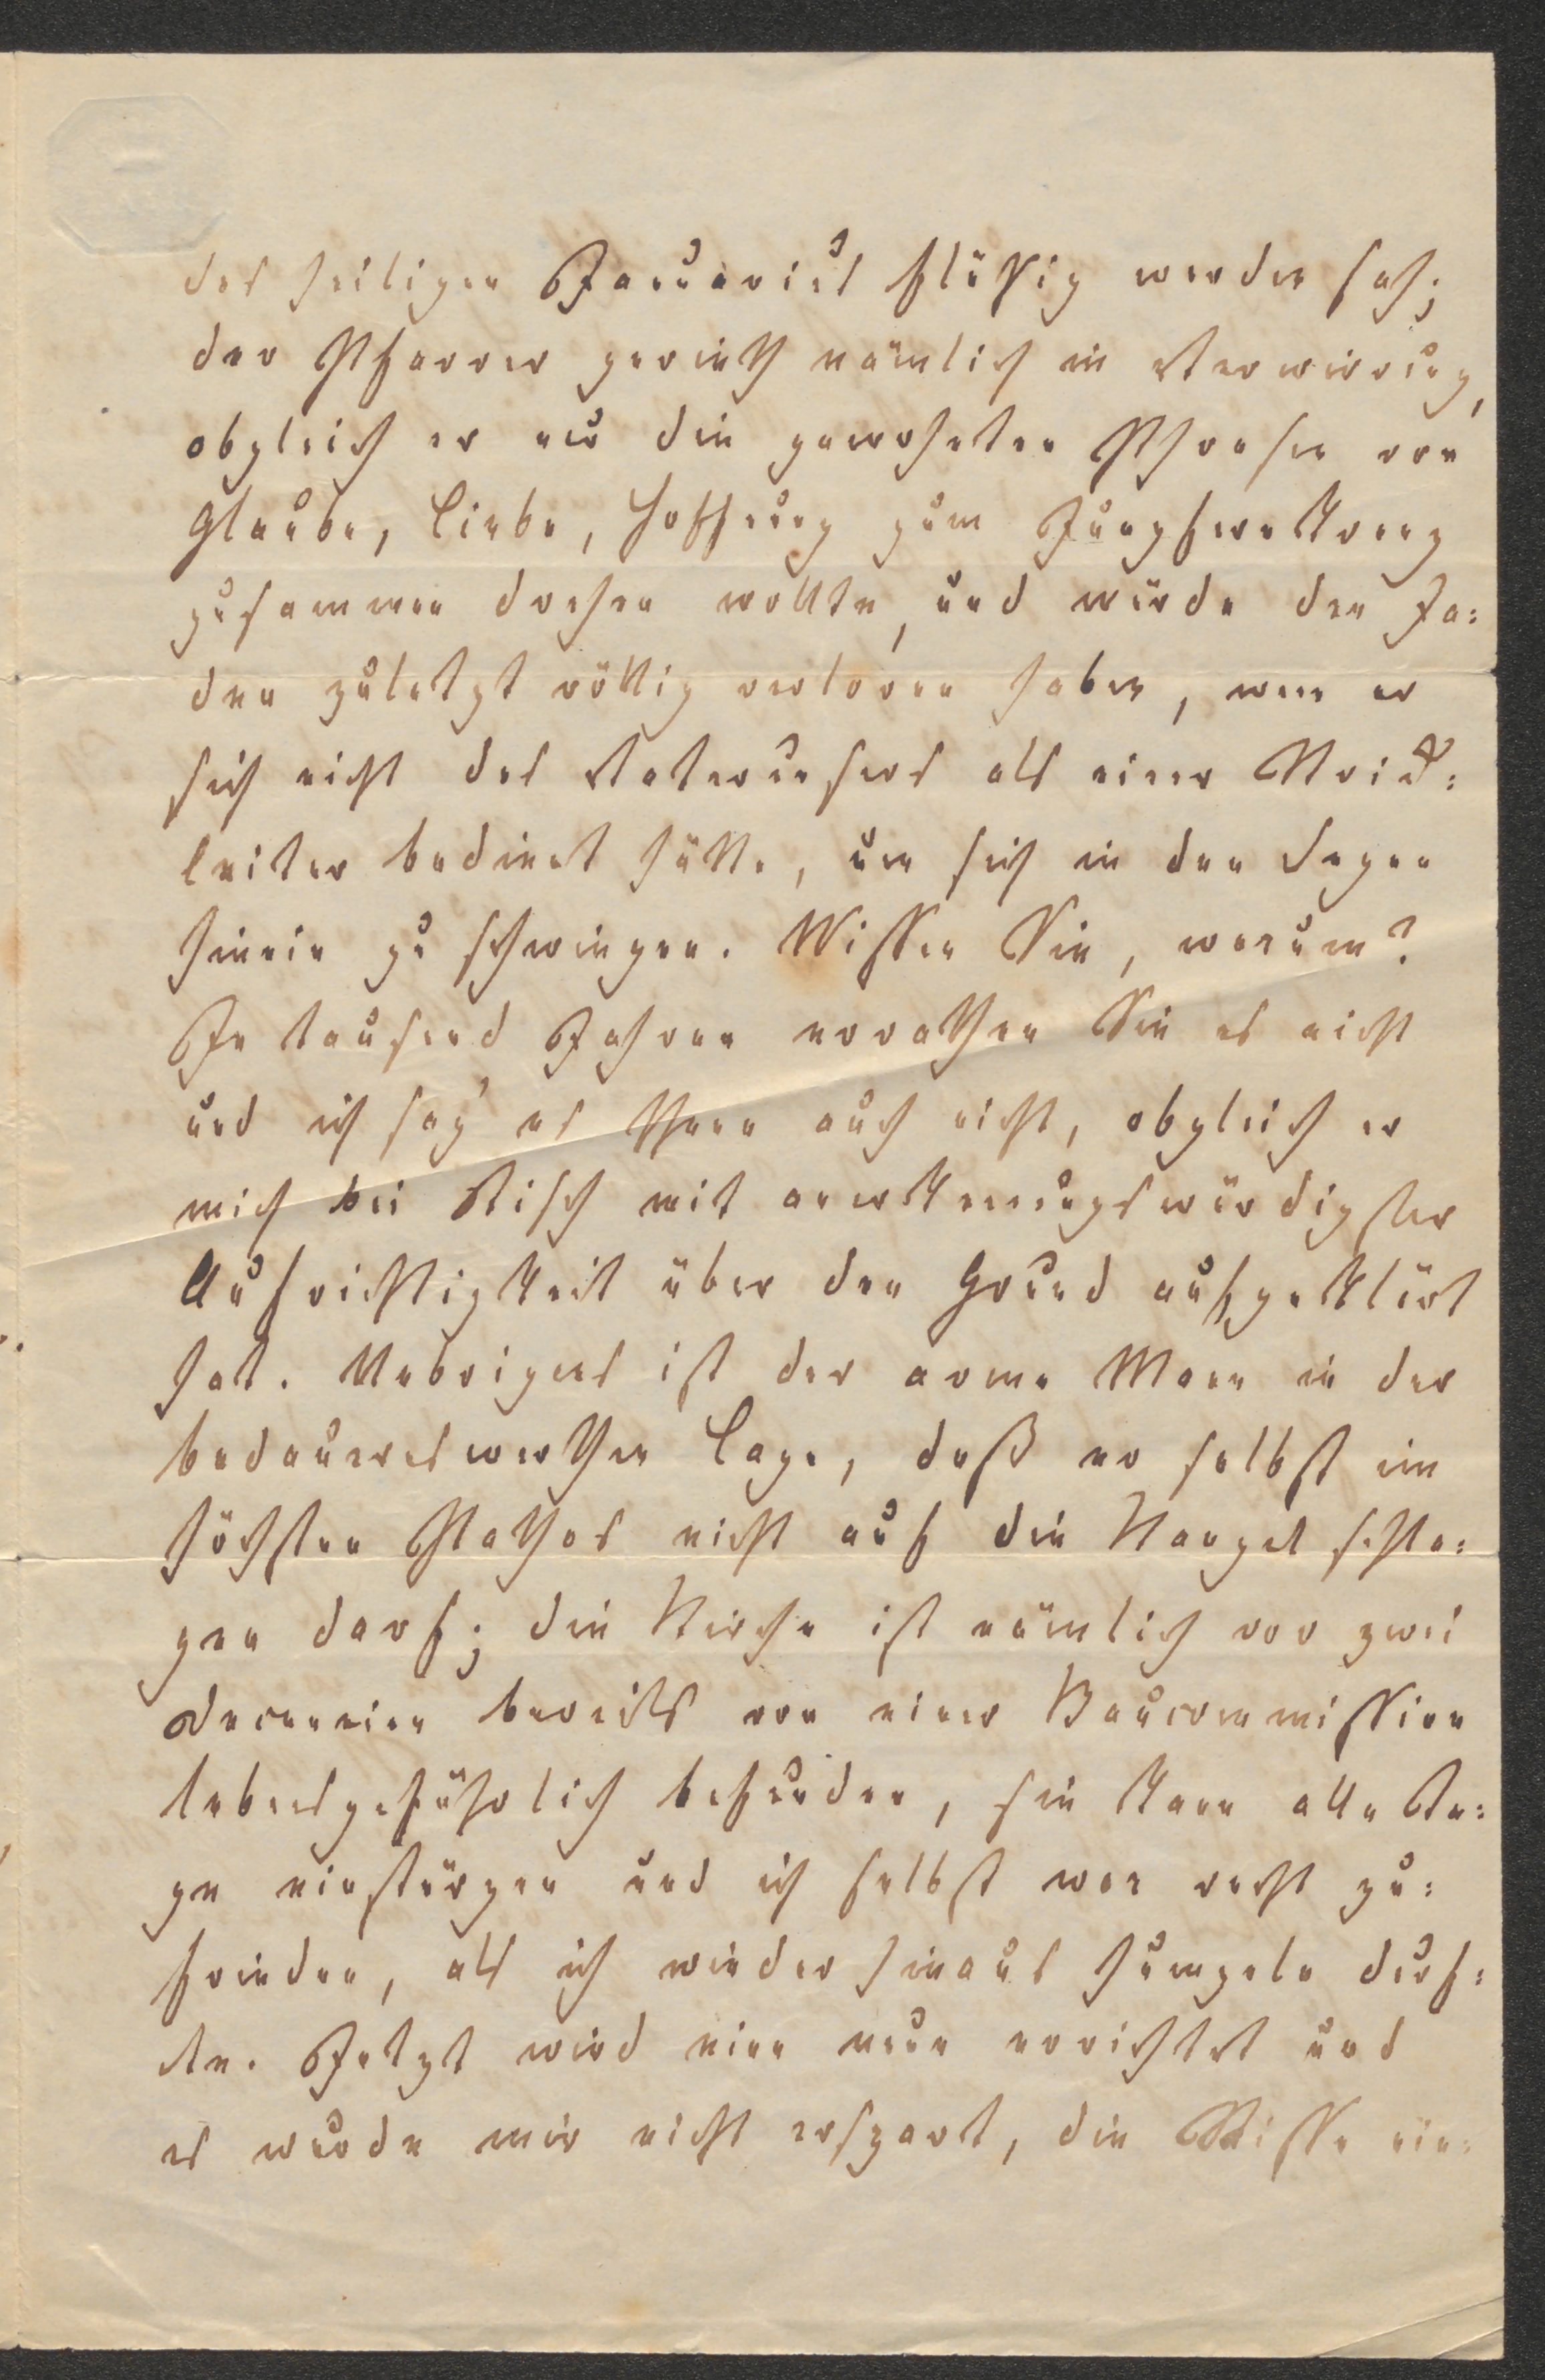 des heiligen Januarius flüssig werden sah;
der Pfarrer gerieth nämlich in Verwirrung,
obgleich er nur die gewohnten Phrasen von
Glaube, Liebe, Hoffnung zum Jungfernkranz
zusammen drehen wollte, und würde den Fa=
den zuletzt völlig verloren haben, wenn er
sich nicht des Vaterunsers als einer Strick=
leiter bedient hätte, um sich in den Segen
hinein zu schwingen. Wissen Sie, warum?
In tausend Jahren errathen Sie es nicht
und ich sag' es Ihnen auch nicht, obgleich er
mich bei Tisch mit anerkennungswürdigster
Aufrichtigkeit über den Grund aufgeklärt
hat. Uebrigens ist der arme Mann in der
bedauernswerthen Lage, daß er selbst im
höchsten Pathos nicht auf die Kanzel schla=
gen darf; die Kirche ist nämlich vor zwei
Decennien bereits von einer Baucommission
lebensgefährlich befunden, sie kann alle Ta=
ge einstürzen und ich selbst war recht zu=
frieden, als ich wieder hinaus humpeln durf=
te. Jetzt wird eine neue errichtet und
es wurde mir nicht erspart, die Risse ein=